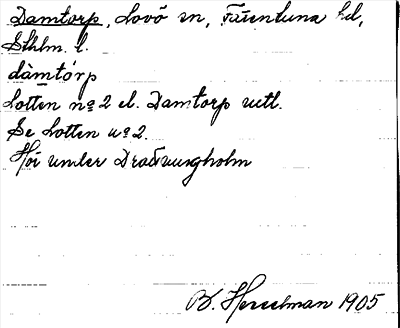 Damtorp, Lovö sn, Färentuna hd,
Sthlm. l.
dàmtórp
Lotten nº 2 el. Damtorp utl.
Se Lotten nº 2.
Hör under Drottningholm
B. Hesselman 1905